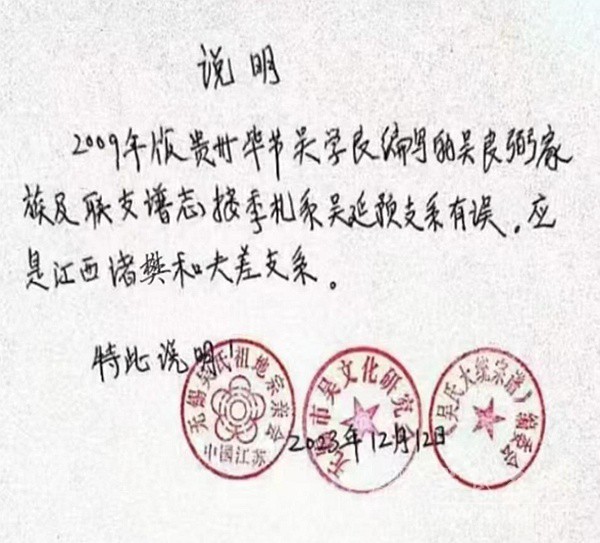 说明
2009年版贵州毕节吴学良编写的吴良弼家
族及联支谱志,接季札系吴延预支系有误。应
是江西诸樊和夫差支系。
特此说明!
无锡吴氏祖地宗亲会
中国江苏
无锡市吴文化研究会
《吴氏大统宗谱》编委会
2023年12月12日